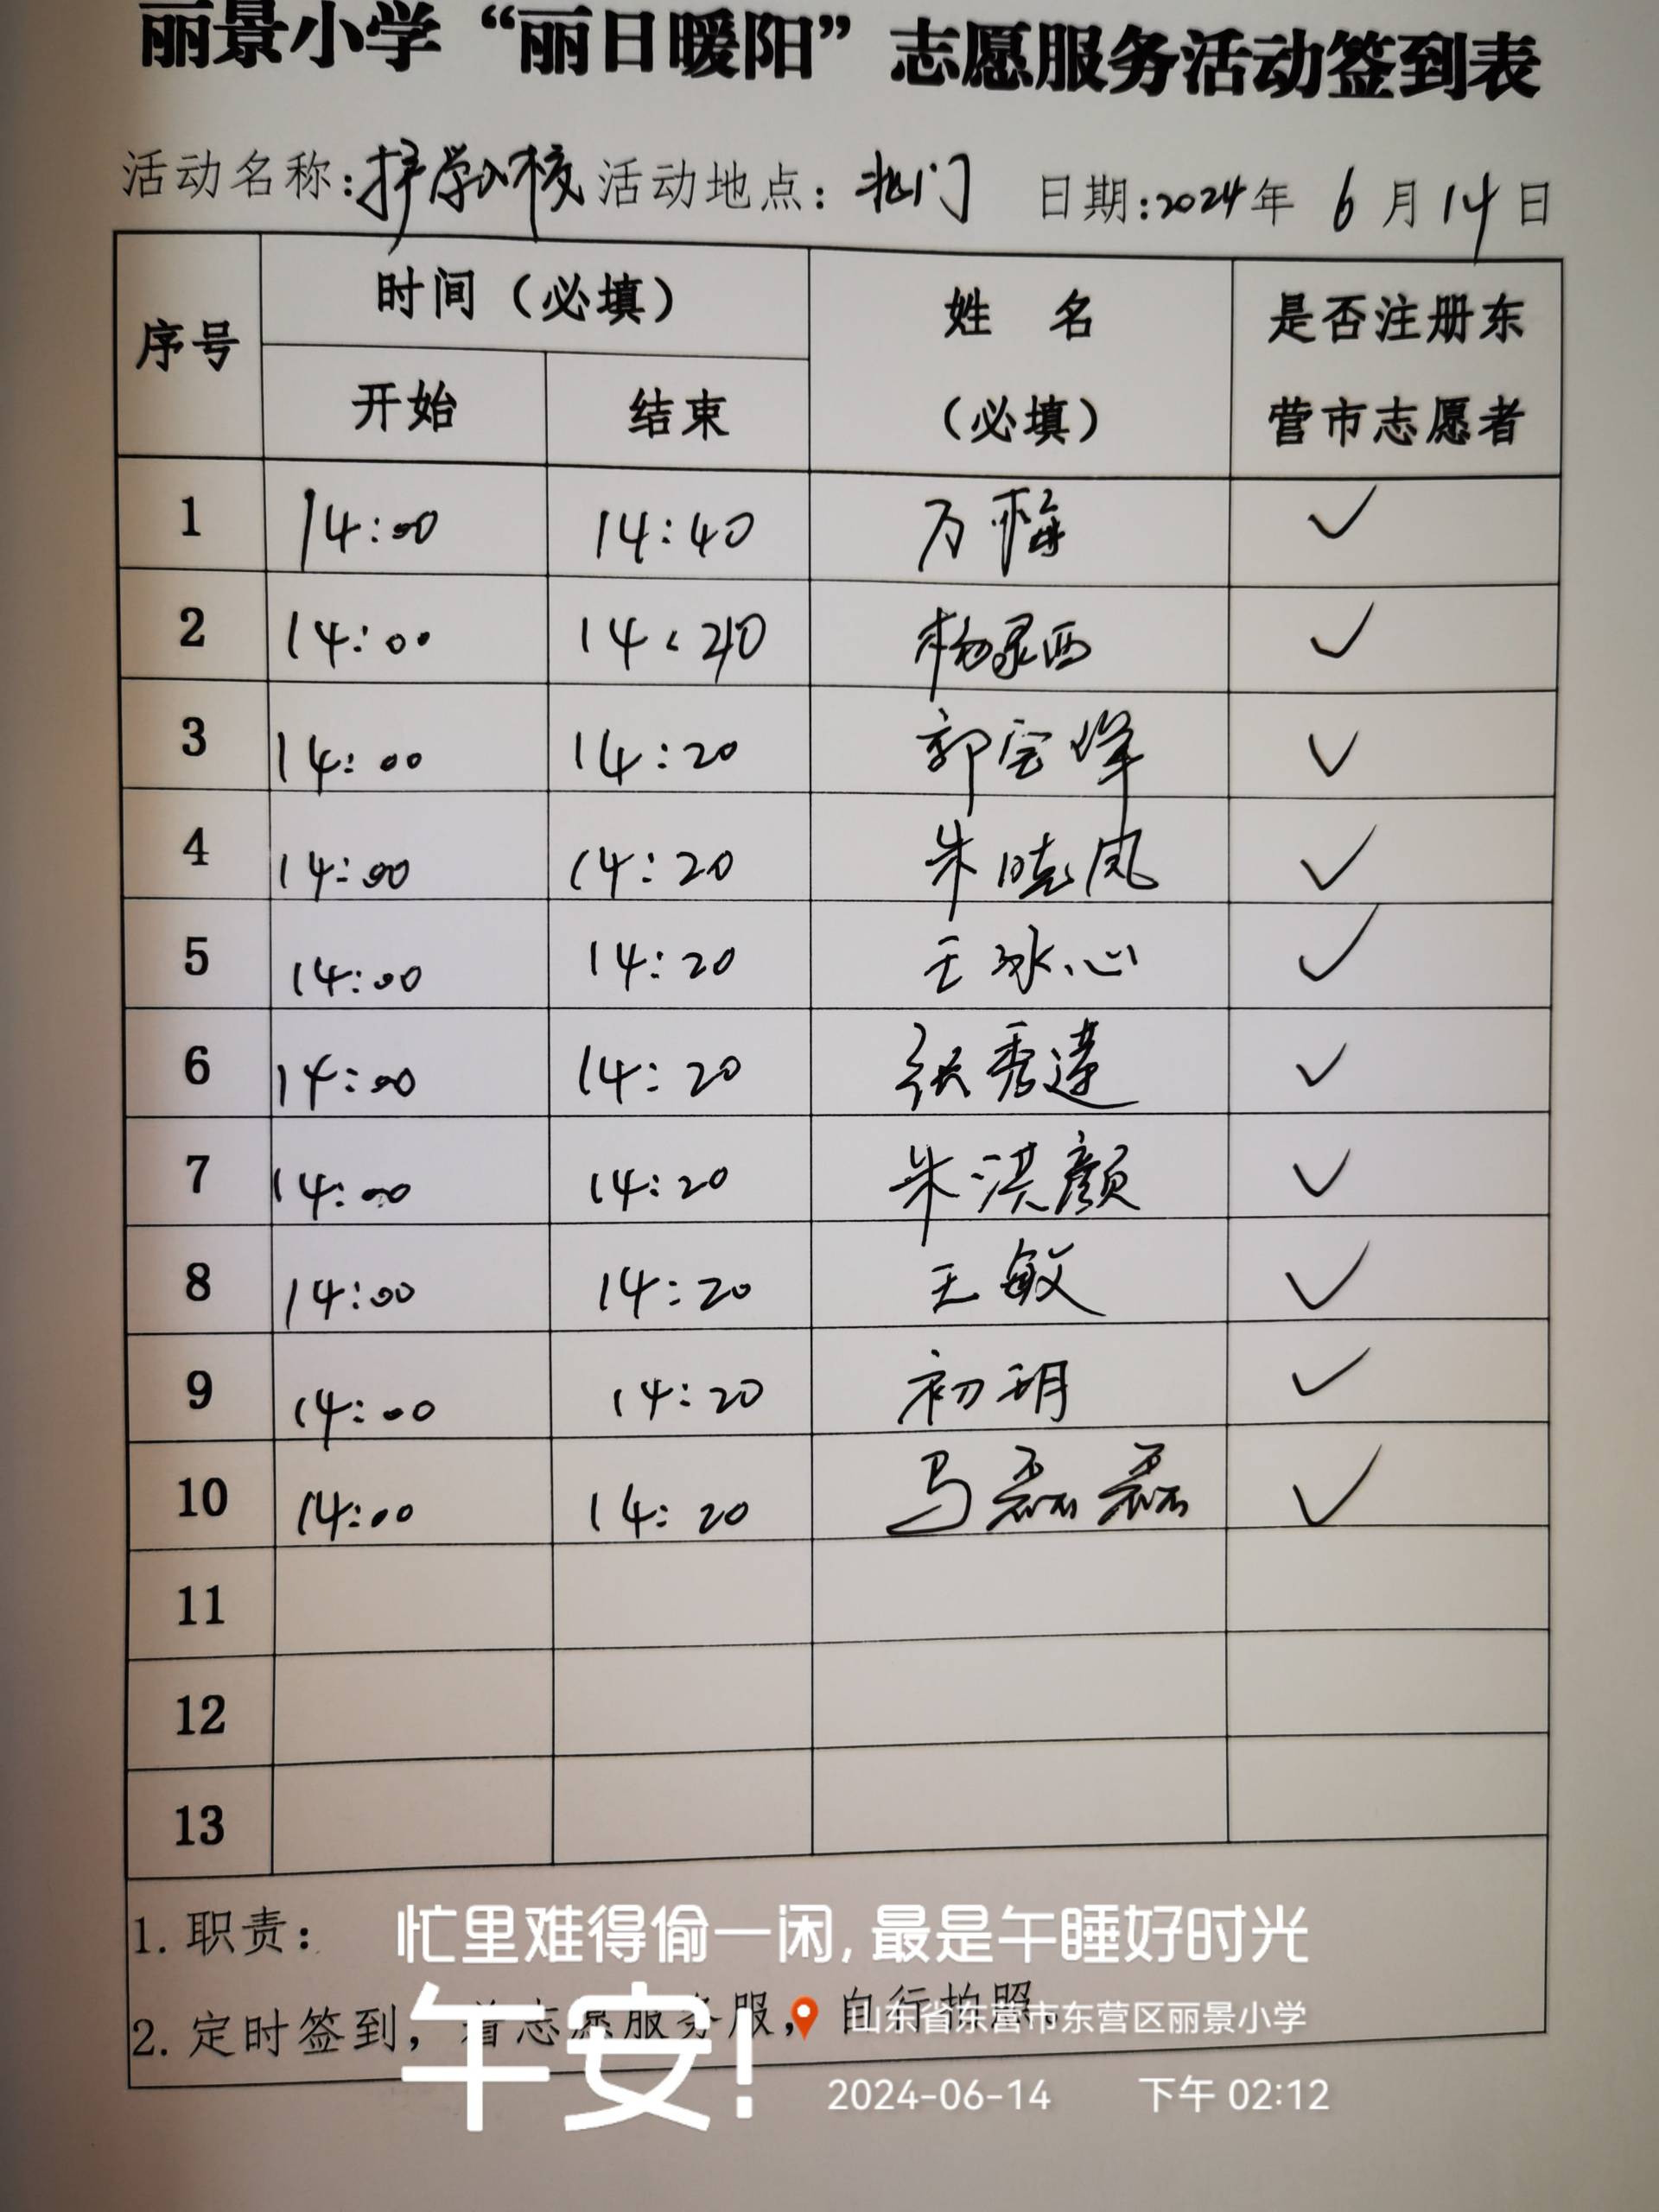 丽景小学“丽日暖阳”志愿服务活动签到表
活动名称:护学入校 活动地点:北门 日期:2024年 6 月 14 日
序号 时间(必填) 姓 名 (必填) 是否注册东营市志愿者
开始 结束
1 14:00 14:40 万梅 ✓
2 14:00 14:20 杨景西 ✓
3 14:00 14:20 郭宝峰 ✓
4 14:00 14:20 朱晓凤 ✓
5 14:00 14:20 王冰心 ✓
6 14:00 14:20 张秀莲 ✓
7 14:00 14:20 朱洪颜 ✓
8 14:00 14:20 王敏 ✓
9 14:00 14:20 初玥 ✓
10 14:00 14:20 马磊磊 ✓
11
12
13
1.职责:
忙里难得偷一闲,最是午睡好时光
2.定时签到,着志愿服务服,自行拍照。
午安!
山东省东营市东营区丽景小学
2024-06-14 下午 02:12